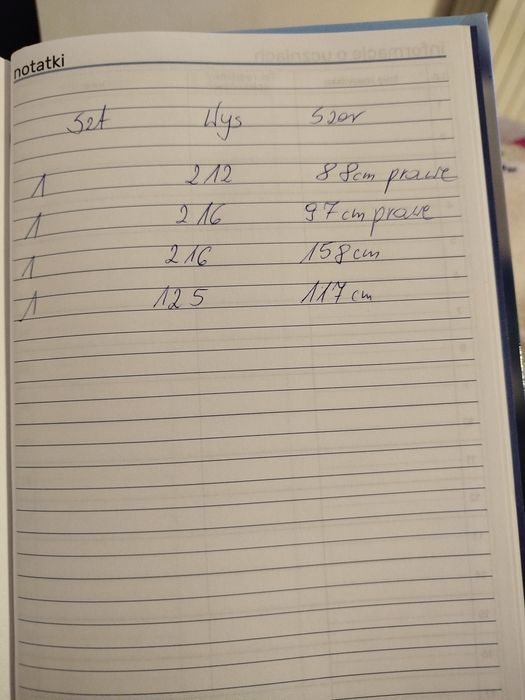 notatki
Szt Wys Szer
1 212 88cm prawe
1 216 97cm prawe
1 216 158cm
1 125 117cm